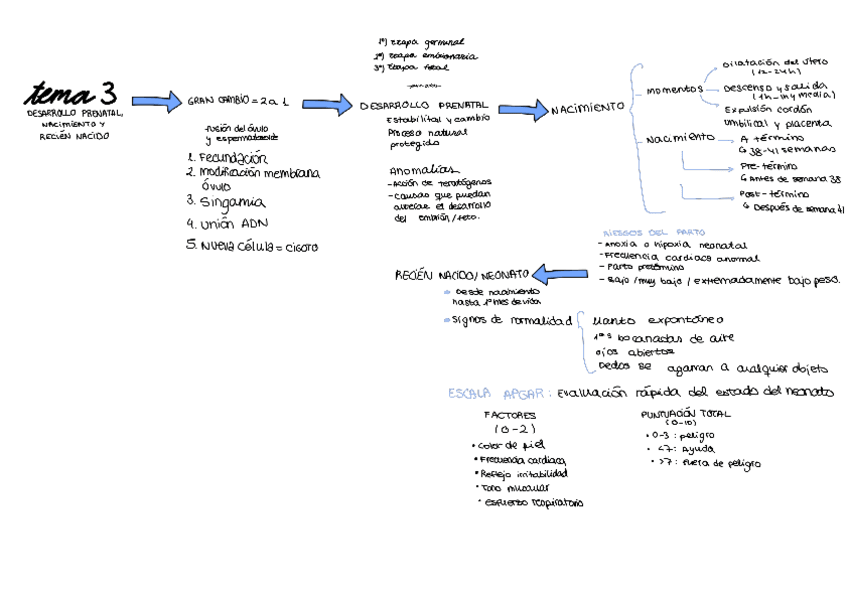 tema 3
DESARROLLO PRENATAL,
NACIMIENTO Y
RECIÉN NACIDO
GRAN CAMBIO = 2 a 1
fusión del óvulo
y espermatozoide
1. Fecundación
2. modificación membrana
óvulo
3. Singamia
4. unión ADN
5. Nueva célula = cigoto
1º) Etapa germinal
2º) Etapa embrionaria
3º) Etapa fetal
DESARROLLO PRENATAL
Estabilital y cambio
Proceso natural
protegido
Anomalías
- Acción de teratógenos
- Causas que puedan
alterar el desarrollo
del embrión/feto.
NACIMIENTO
momentos
Dilatación del útero
(12-24h)
Descenso y salida
(1h-1h y media)
Expulsión cordón
umbilical y placenta
Nacimiento
A término
38-41 semanas
Pre-término
Antes de semana 38
Post-término
Después de semana 41
RIESGOS DEL PARTO
- Anoxia o hipoxia neonatal
- Frecuencia cardiaca anormal
- Parto pretérmino
- Bajo / muy bajo / extremadamente bajo peso.
RECIÉN NACIDO/NEONATO
Desde nacimiento
hasta 1º mes de vida
Signos de normalidad
llanto expontáneo
1ªs bocanadas de aire
ojos abiertos
Dedos se agarran a cualquier objeto
ESCALA APGAR: Evaluación rápida del estado del neonato
FACTORES
(0-2)
• Color de piel
• Frecuencia cardiaca
• Reflejo irritabilidad
• Tono muscular
• esfuerzo respiratorio
PUNTUACIÓN TOTAL
(0-10)
• 0-3: peligro
• <7: Ayuda
• >7: fuera de peligro